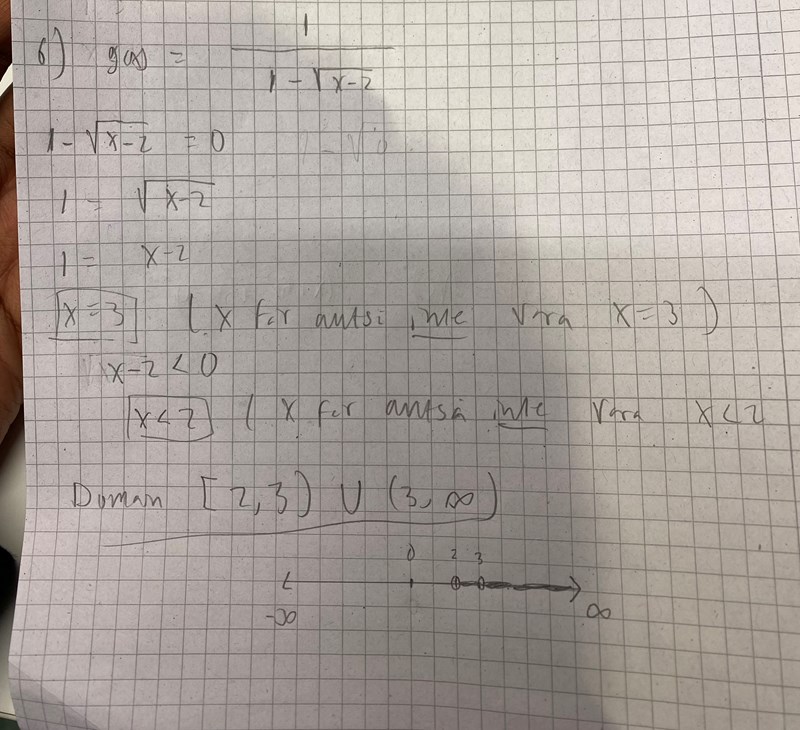 6) g(x) = 1 / (1 - √(x-2))
1 - √(x-2) = 0
1 = √(x-2)
1 = x-2
x = 3 ( x får inte vara x = 3 )
x-2 < 0
x < 2 ( x får inte vara x < 2
Domän [2,3) ∪ (3,∞)
0 2 3
-∞ ∞